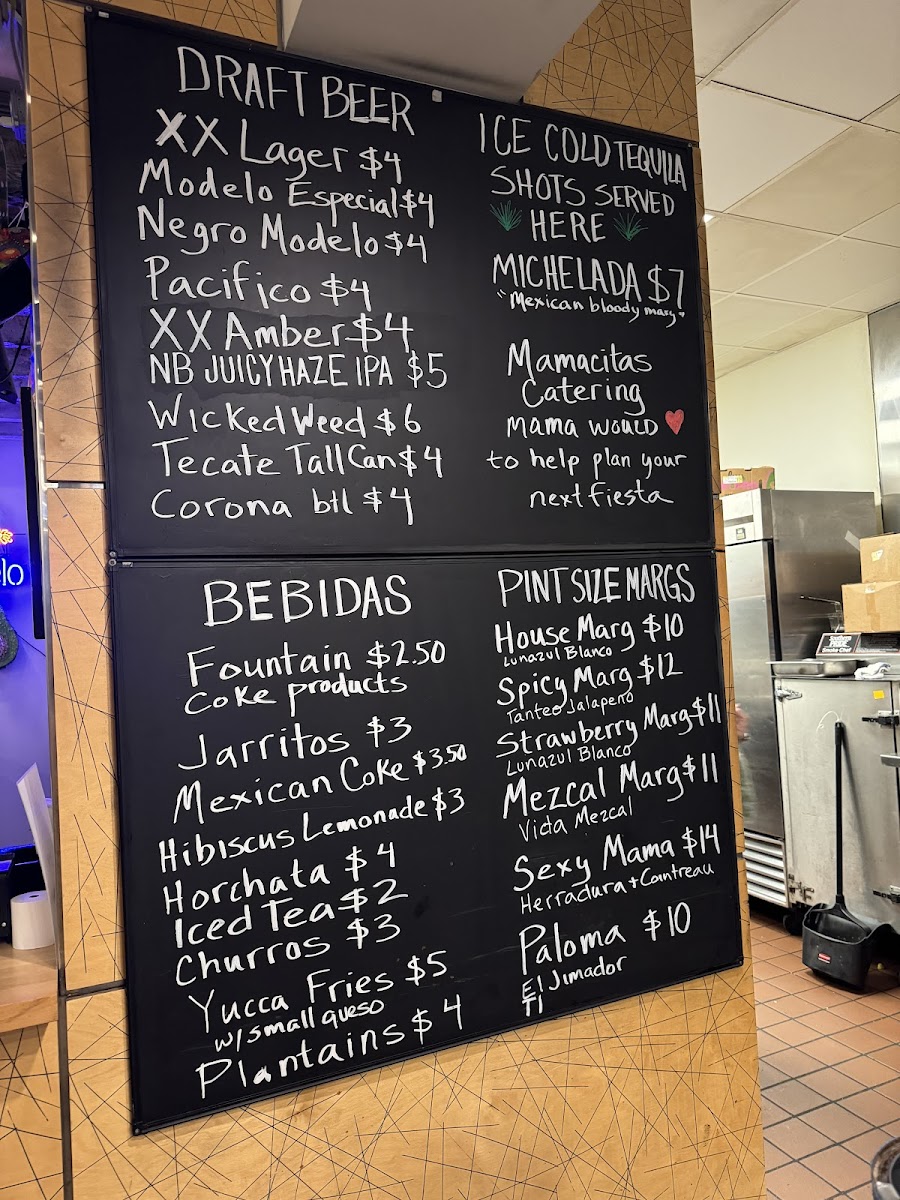 DRAFT BEER
XX Lager $4
Modelo Especial $4
Negro Modelo $4
Pacifico $4
XX Amber $4
NB JUICY HAZE IPA $5
Wicked Weed $6
Tecate Tall Can $4
Corona btl $4
ICE COLD TEQUILA
SHOTS SERVED
HERE
MICHELADA $7
"Mexican bloody mary"
Mamacitas
Catering
MAMA WOULD ♥
to help plan your
next fiesta
BEBIDAS
Fountain $2.50
Coke products
Jarritos $3
Mexican Coke $3.50
Hibiscus Lemonade $3
Horchata $4
Iced Tea $2
Churros $3
Yucca Fries $5
w/small queso
Plantains $4
PINT SIZE MARGS
House Marg $10
Lunazul Blanco
Spicy Marg $12
Tanteo Jalapeno
Strawberry Marg $11
Lunazul Blanco
Mezcal Marg $11
Vida Mezcal
Sexy Mama $14
Herradura + Contreau
Paloma $10
El Jimador
lo
Southern
PRIDE
Smoke Chef